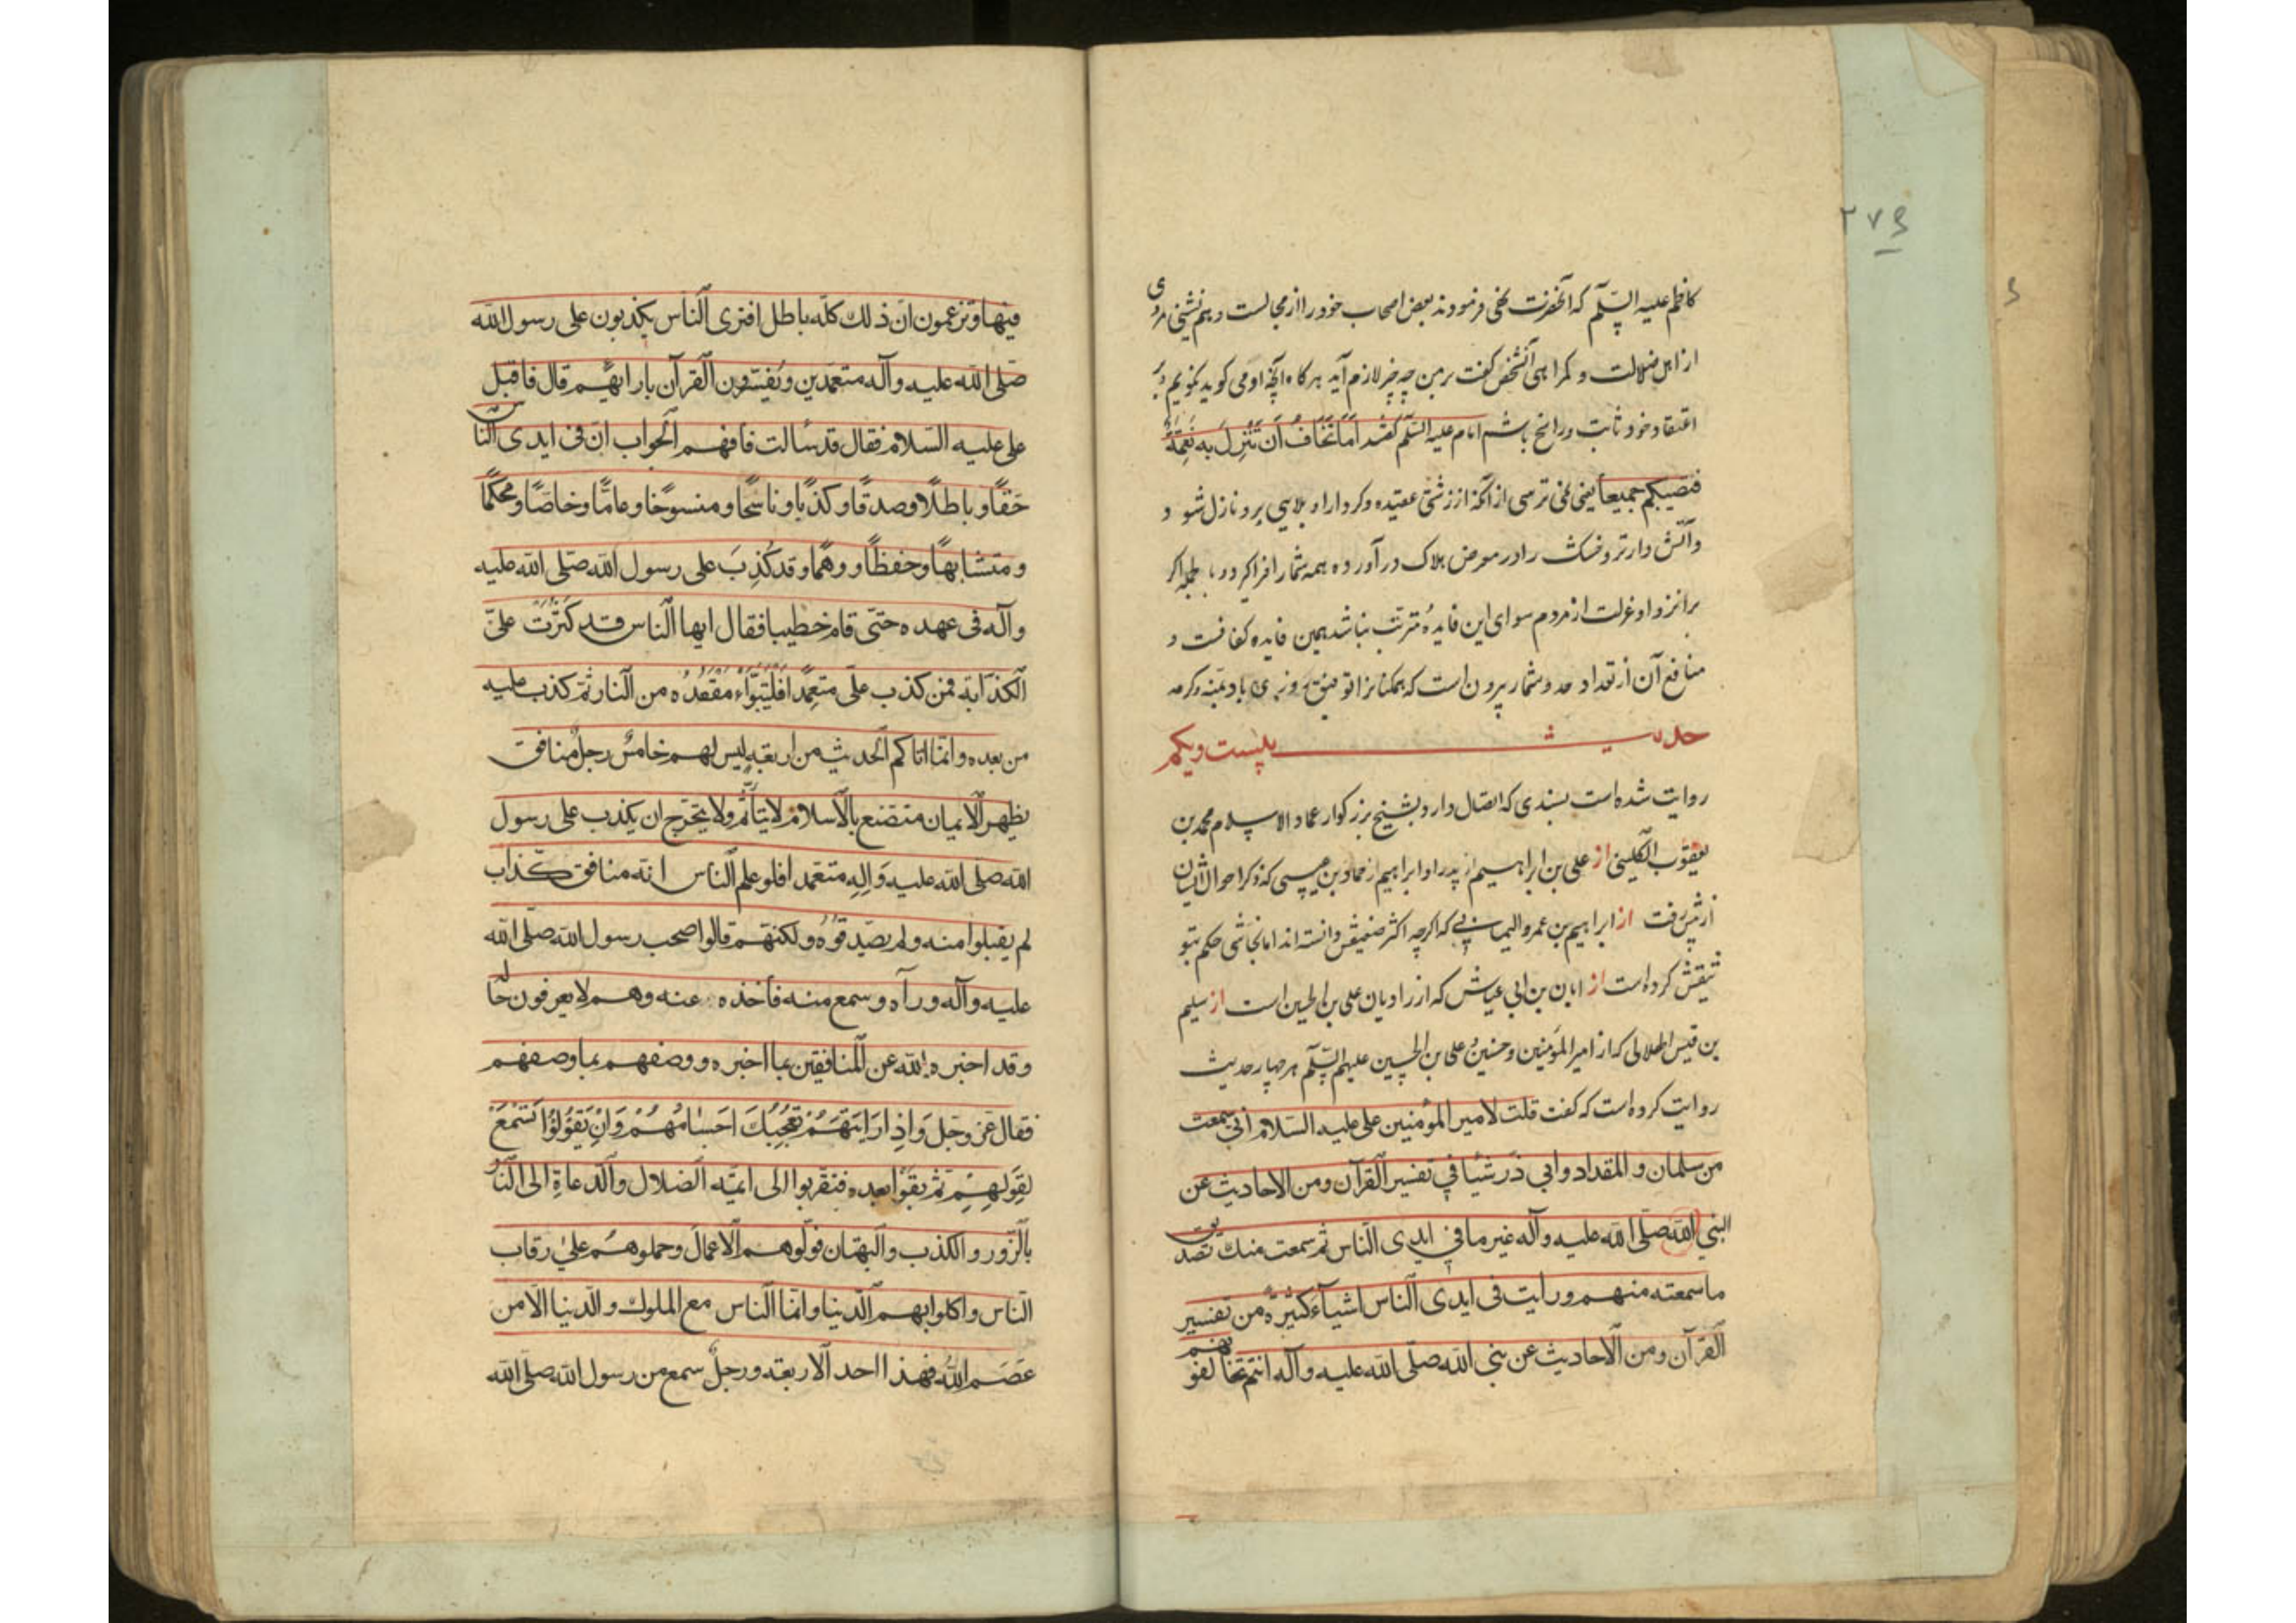 ۲۷۶
کاظم علیه السّلم که آنحضرت نهی فرمودند بعض اصحاب خود را از مجالست و هم نشینی مردی
از اهل ضلالت و گمراهی آنشخص گفت بر من چه چیز لازم آید هرگاه آنچه او می گوید نگویم و بر
اعتقاد خود ثابت و راسخ باشم امام علیه السّلم گفتند اَمَا تَخَافُ اَن تَنْزِلَ بِهِ نَقِمَةٌ
فتصیبکم جمیعا یعنی نمی ترسی از آنکه از زشتی عقیده و کردار او بلایی برو نازل شود و
و آتش دار تر و خشک را در معرض هلاک در آورده همه شما را فرا گیرد و بالجمله اگر
بر انزوا و عزلت از مردم سوای این فایده مترتب نباشد همین فایده کفافست و
منافع آن از تعداد حد و شمار بیرون است که همگنانرا توفیق روزی باد بمنّه و کرمه
حدیث بیست و یکم
روایت شده است بسندی که اتصال دارد بشیخ بزرگوار عماد الاسلام محمد بن
یعقوب الکلینی از علی بن ابراهیم از پدر او ابراهیم از حماد بن عیسی که ذکر احوال ایشان
از پیش رفت از ابراهیم بن عمرو الیمانی که اگرچه اکثر ضعیفش دانسته اند اما نجاشی حکم بتو
ثیقش کرده است از ابان بن ابی عیاش که از راویان علی بن الحسین است از سلیم
بن قیس الهلالی که از امیر المؤمنین و حسنین و علی بن الحسین علیهم السّلم هر چهار حدیث
روایت کرده است که گفت قلت لامیر المؤمنین علی علیه السلام انی سمعت
من سلمان و المقداد و ابی ذر شیئا فی تفسیر القرآن و من الاحادیث عن
النبی الله صلی الله علیه و آله غیر ما فی ایدی الناس ثم سمعت منك تصدیق
ما سمعته منهم و رایت فی ایدی الناس اشیآء کثیرة من تفسیر
القرآن و من الاحادیث عن نبی الله صلّی الله علیه و آله انتم تخالفونهم
فیها و تزعمون انّ ذلك کلّه باطل افتری الناس یکذبون علی رسول الله
صلی الله علیه و آله متعمدین و یفسّرون القرآن بارائهم قال فاقبل
علی علیه السلام فقال قد سالت فافهم الجواب انّ فی ایدی الناس
حَقًّا و باطلًا و صدقًا و کذبًا و ناسخًا و منسوخًا و عامًّا و خاصًّا و محکمًا
و متشابهًا و حفظًا و وهمًا و قد کُذِبَ علی رسول الله صلّی الله علیه
و آله فی عهده حتی قام خطیبا فقال ایها الناس قد کَثُرَتْ علیّ
الکذابة فمن کذب علیّ متعمِّدًا فَلْیَتَبَوَّاء مَقْعَدُه من النار ثمّ کذب علیه
من بعده و انما اتاکم الحدیث من اربعة لیس لهم خامسٌ رجلٌ منافق
یظهر الایمان متصنع بالاسلام لا یتأثّم ولا یتحرّج ان یکذب علی رسول
الله صلی الله علیه وَ آلِهِ متعمّدا فلو علم الناس انه منافق کذاب
لم یقبلوا منه و لم یصدّقوُه و لکنهم قالوا صحب رسول الله صلی الله
علیه و آله و رآه و سمع منه فأخذه عنه و هم لا یعرفون حاله
و قد اخبره الله عن المنافقین بما اخبره و وصفهم بما وصفهم
فقال عز و جل وَ اِذا رَاَیْتَهُمْ تُعْجِبُكَ اَجْسامُهُمْ وَ اِنْ یَقُولُوا تَسْمَعْ
لِقَوْلِهِمْ ثم بقوا بعده فتقربوا الی ائمّة الضلال و الدعاةِ الی النار
بالزور و الکذب و البهتان فولّوهم الاعمال و حملوهم علی رقاب
الناس و اکلوا بهم الدنیا و انما الناس مع الملوك و الدنیا الا من
عَصَم اللهُ فهذا احد الاربعة و رجلٌ سمع من رسول الله صلی الله